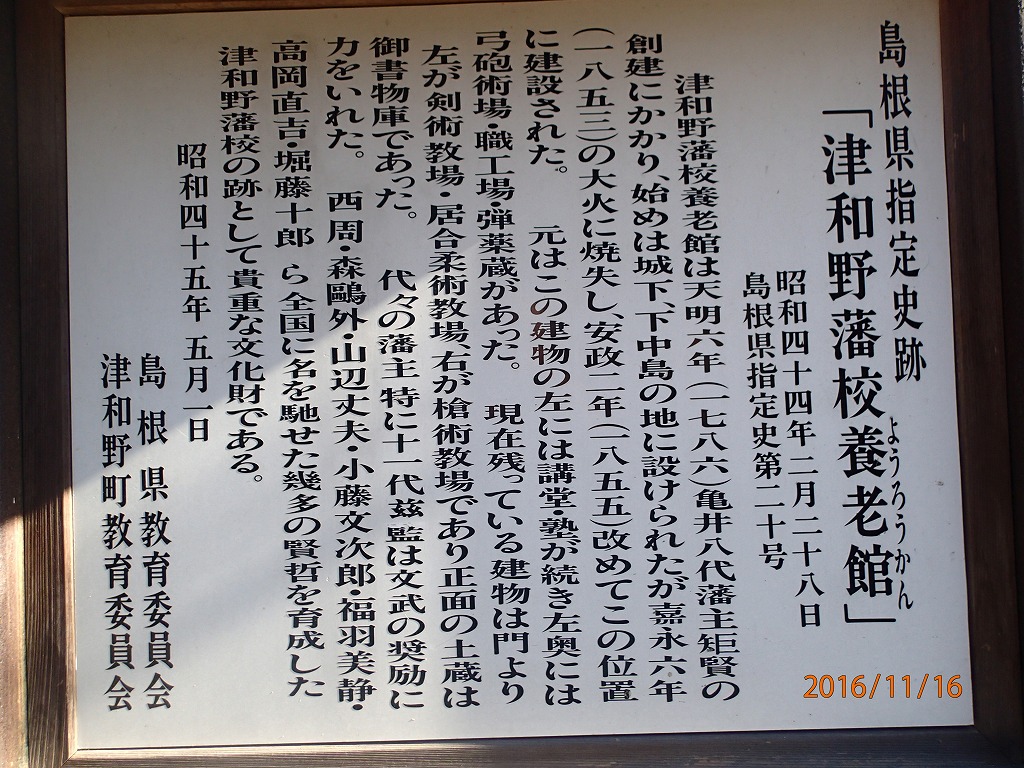 島根県指定史跡
「津和野藩校養老館」
ようろうかん
昭和四十四年二月二十八日
島根県指定史第二十号
津和野藩校養老館は天明六年(一七八六)亀井八代藩主矩賢の
創建にかかり、始めは城下、下中島の地に設けられたが嘉永六年
(一八五三)の大火に焼失し、安政二年(一八五五)改めてこの位置
に建設された。 元はこの建物の左には講堂・塾が続き左奥には
弓砲術場・職工場・弾薬蔵があった。 現在残っている建物は門より
左が剣術教場・居合柔術教場、右が槍術教場であり正面の土蔵は
御書物庫であった。 代々の藩主特に十一代玆監は文武の奨励に
力をいれた。 西周・森鷗外・山辺丈夫・小藤文次郎・福羽美静・
高岡直吉・堀藤十郎 ら全国に名を馳せた幾多の賢哲を育成した
津和野藩校の跡として貴重な文化財である。
昭和四十五年 五月一日
島根県教育委員会
津和野町教育委員会
2016/11/16